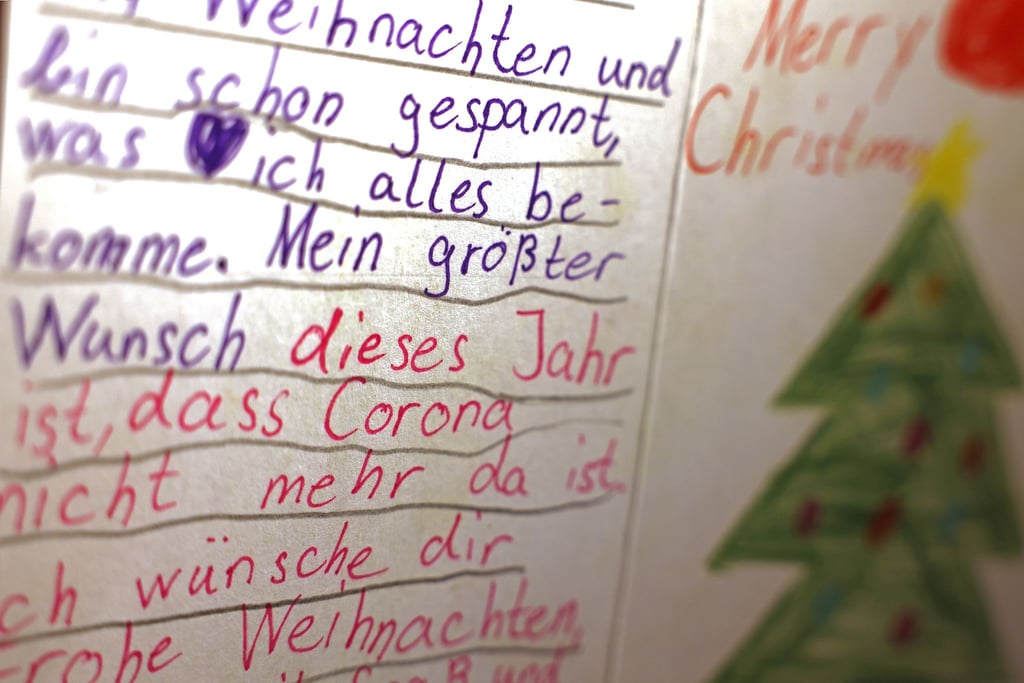 Weihnachten und
bin schon gespannt,
was ich alles be-
komme. Mein größter
Wunsch dieses Jahr
ist, dass Corona
nicht mehr da ist.
ch wünsche dir
Frohe Weihnachten,
und
Merry
Christmas